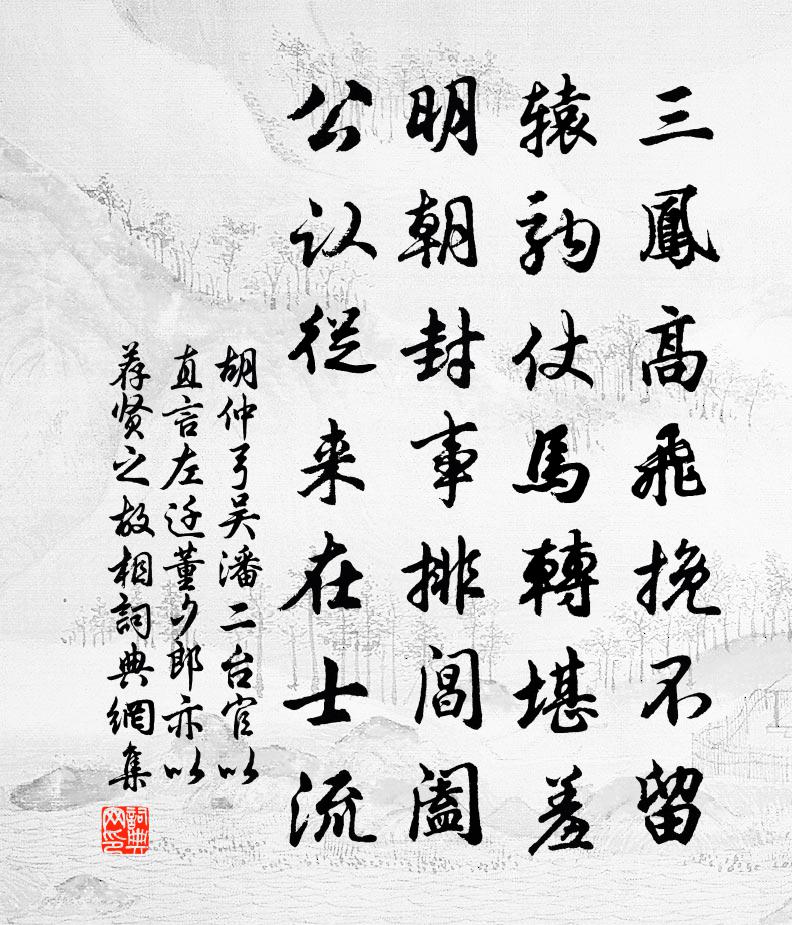 三鳳高飛挽不留
辕驹仗馬轉堪羞
明朝封事排閶闔
公议從来在士流
胡仲弓吴潘二台官以
直言左迁董夕郎亦以
荐贤之故相詞典網集
詞典网印